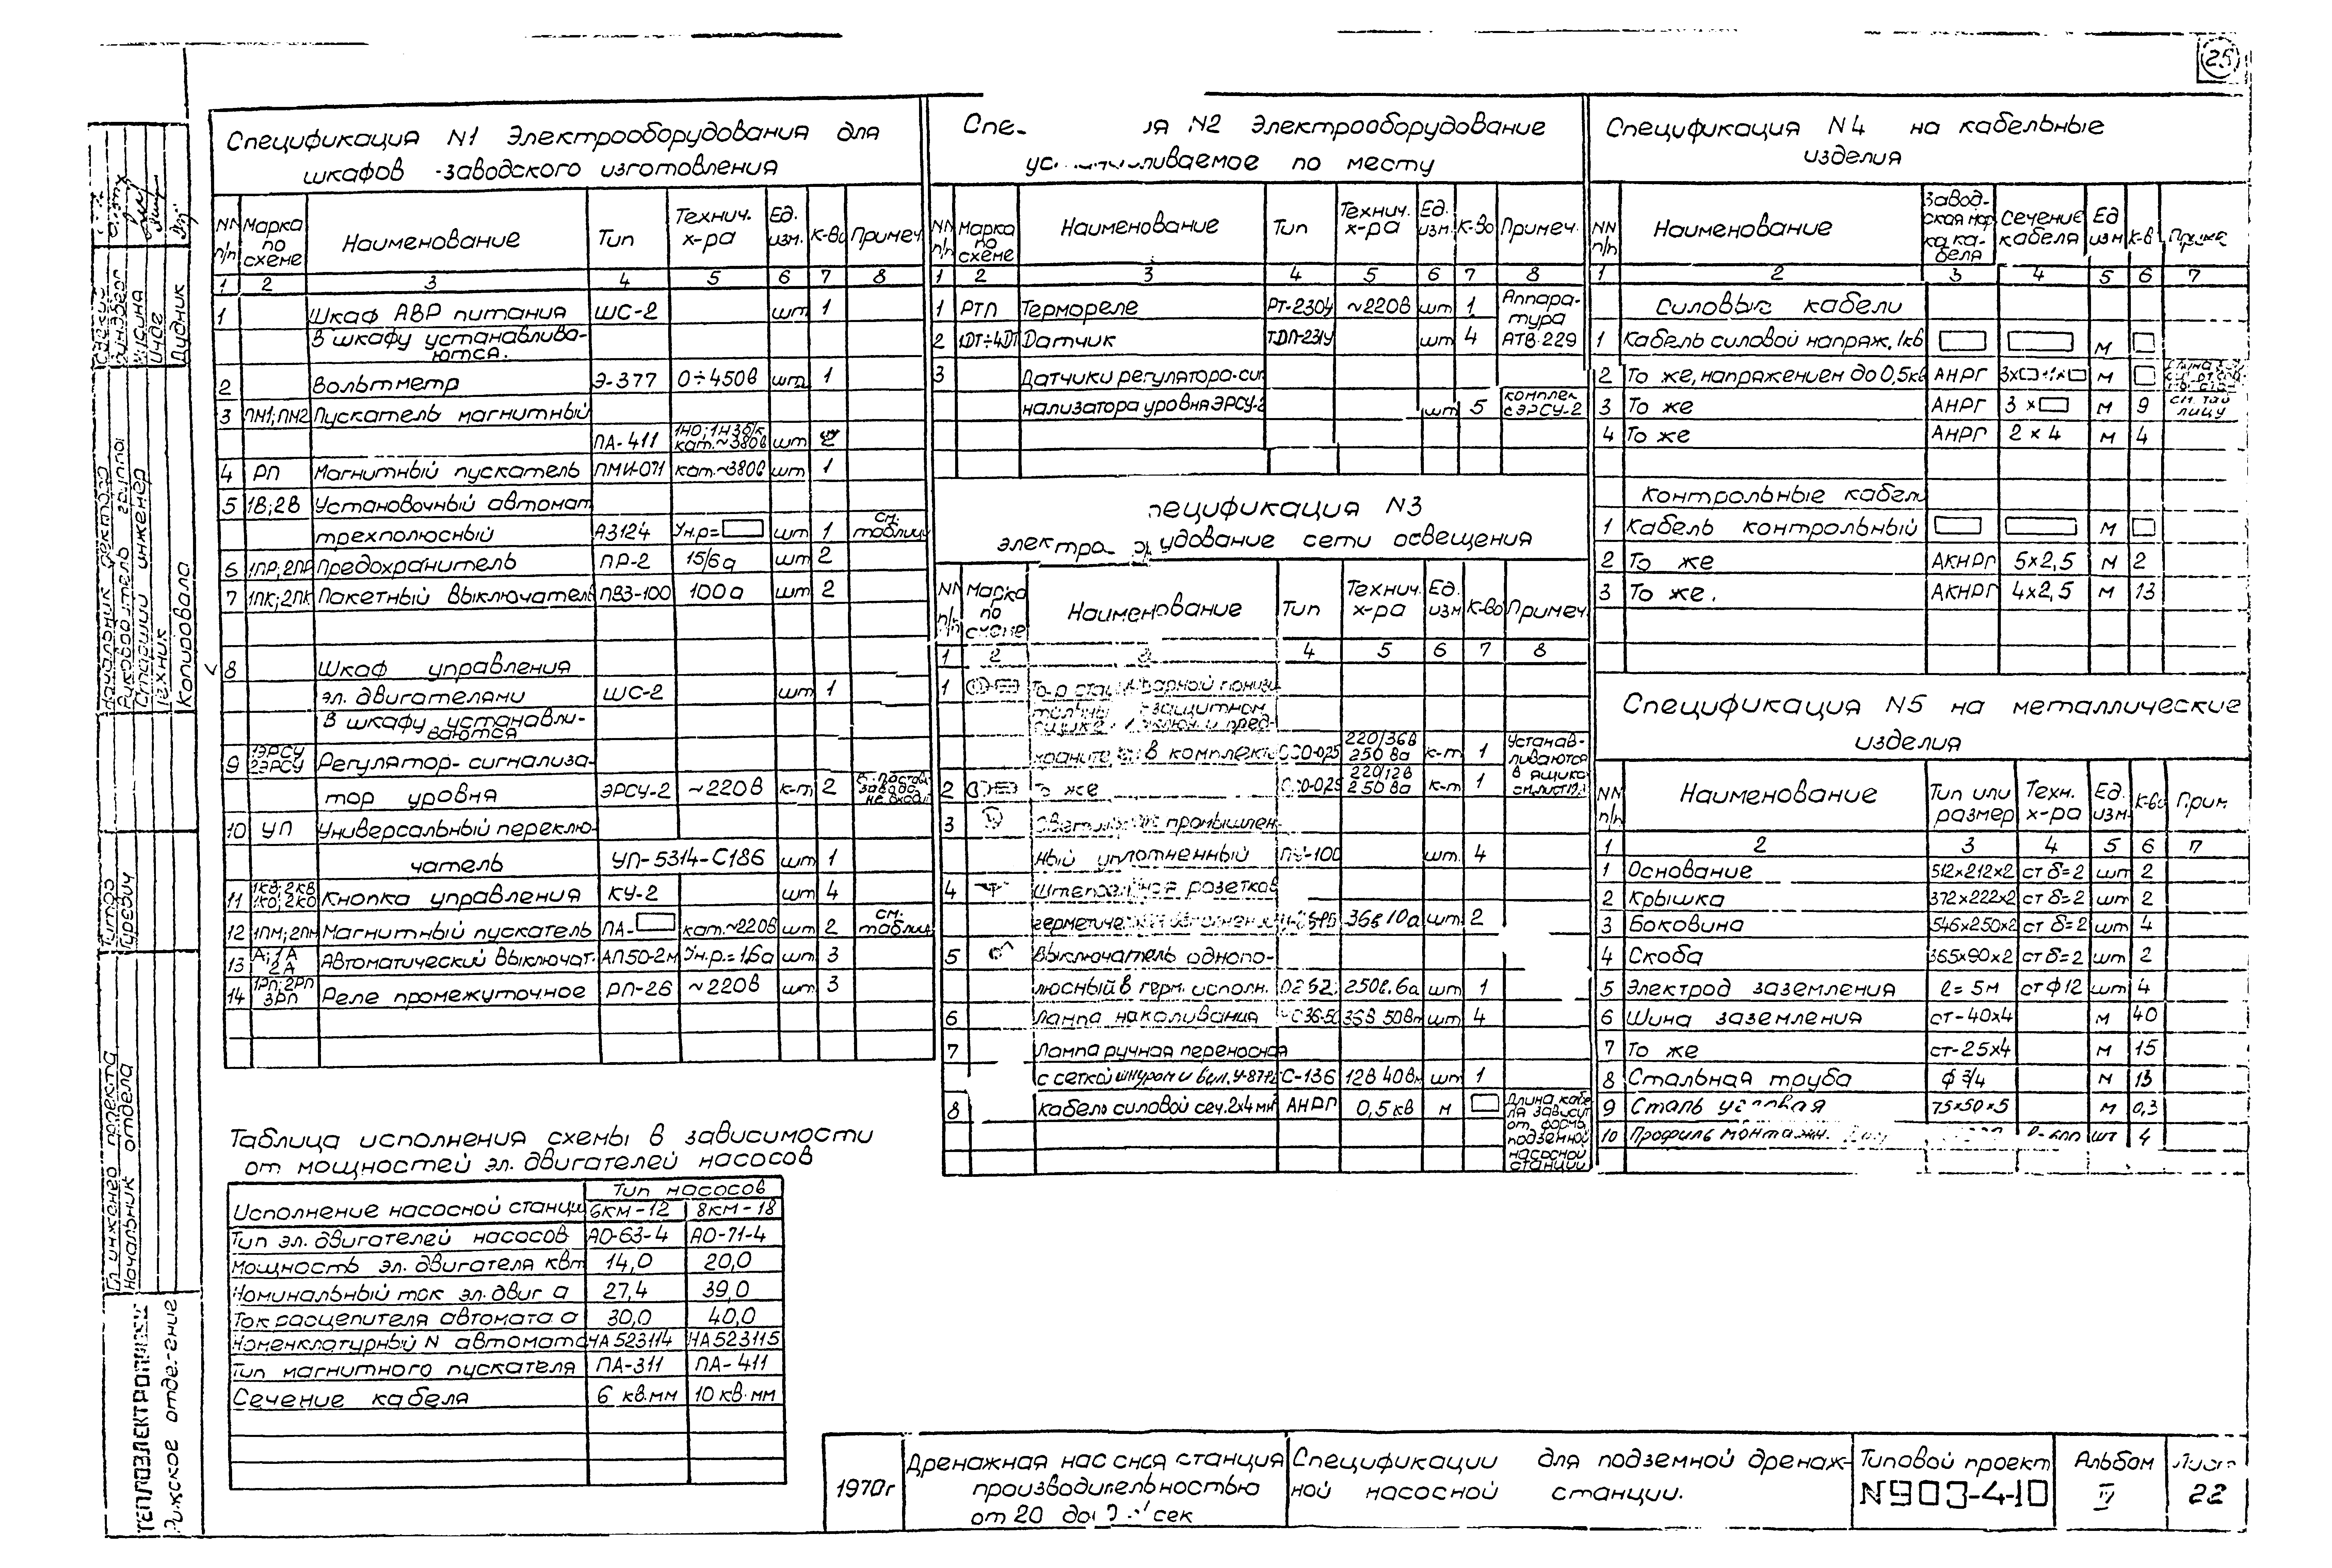 25
Спецификация N1 Электрооборудования для
шкафов заводского изготовления
NN п/п Марка по схеме Наименование Тип Технич. х-ра Ед. изм. К-во Примеч.
1 2 3 4 5 6 7 8
1 Шкаф АВР питания ШС-2 шт 1
В шкафу устанавлива-
ются.
2 Вольтметр Э-377 0÷450в шт 1
3 ПМ1;ПМ2 Пускатель магнитный
ПА-411 кат.~380в шт 2
4 РП Магнитный пускатель ПМИ-071 кат.~380в шт 1
5 1В;2В Установочный автомат
трехполюсный А3124 Ун.р= шт 1 см. таблиц
6 1ПР;2ПР Предохранитель ПР-2 15/6а шт 2
7 1ПК;2ПК Пакетный выключатель ПВЗ-100 100а шт 2
8 Шкаф управления
эл. двигателями ШС-2 шт 1
В шкафу устанавли-
ваются
9 1ЭРСУ 2ЭРСУ Регулятор-сигнализа-
тор уровня ЭРСУ-2 ~220в к-т 2
10 УП Универсальный переклю-
чатель УП-5314-С186 шт 1
11 1КВ;2КВ 1КО;2КО Кнопка управления КУ-2 шт 4
12 1ПМ;2ПМ Магнитный пускатель ПА- кат.~220в шт 2 см. таблиц
13 А;1А 2А Автоматический выключат. АП50-2м Ун.р.=1,6а шт 3
14 1РП;2РП 3РП Реле промежуточное РП-26 ~220в шт 3
Таблица исполнения схемы в зависимости
от мощностей эл. двигателей насосов
Исполнение насосной станции Тип насосов
6КМ-12 8КМ-18
Тип эл. двигателей насосов АО-63-4 АО-71-4
Мощность эл. двигателя квт 14,0 20,0
Номинальный ток эл. двиг а 27,4 39,0
Ток расцепителя автомата а 30,0 40,0
Номенклатурный N автомата НА523114 НА523115
Тип магнитного пускателя ПА-311 ПА-411
Сечение кабеля 6 кв.мм 10 кв.мм
N2 Электрооборудование
по месту
NN п/п Марка по схеме Наименование Тип Технич. х-ра Ед. изм. К-во Примеч.
1 2 3 4 5 6 7 8
1 РТП Термореле РТ-230У ~220в шт 1 Аппара-
тура
2 1ДТ÷4ДТ Датчик ТДП-231У шт 4 АТВ-229
3 Датчики регулятора-сиг
нализатора уровня ЭРСУ-2 шт 5 комплек с ЭРСУ-2
пецификация N3
сети освещения
NN п/п Марка по схеме Наименование Тип Технич. х-ра Ед. изм К-во Примеч.
1 2 3 4 5 6 7 8
1
в комплекте ОСО-0,25 220/36в 250 ва к-т 1 Устанав-
ливаются
2 То же ОСО-0,25 220/12в 250 ва к-т 1 в ящике
3 промышлен-
ный уплотненный ПУ-100 шт. 4
4 розетка
36в 10а шт 2
5 Выключатель одно-
люсный в герм. исполн. 250в. 6а шт 1
6 Лампа накаливания С36-50 36в 50вт шт 4
7 Лампа ручная переносная
с сеткой шнуром и С-136 12в 40вт шт 1
8 кабель силовой сеч. 2х4 мм² АНРГ 0,5 кв м Длина кабе-
ля зависит
от
подземной
насосной
станции
Спецификация N4 на кабельные
изделия
NN п/п Наименование Завод-
ская мар
ка ка-
беля Сечение кабеля Ед изм К-в
1 2 3 4 5 6 7
Силовые кабели
1 Кабель силовой напряж. 1кв м
2 То же, напряжением до 0,5кв АНРГ м
3 То же АНРГ 3 х м 9
4 То же АНРГ 2 х 4 м 4
Контрольные кабели
1 Кабель контрольный м
2 То же АКНРГ 5х2,5 м 2
3 То же. АКНРГ 4х2,5 м 13
Спецификация N5 на металлические
изделия
NN п/п Наименование Тип или размер Техн. х-ра Ед. изм. К-во Прим.
1 2 3 4 5 6 7
1 Основание 512х212х2 ст δ=2 шт 2
2 Крышка 372х222х2 ст δ=2 шт 2
3 Боковина 546х250х2 ст δ=2 шт 4
4 Скоба 365х90х2 ст δ=2 шт 2
5 Электрод заземления ℓ=5м ст ф12 шт 4
6 Шина заземления ст-40х4 м 40
7 То же ст-25х4 м 15
8 Стальная труба ф 3/4 м 13
9 Сталь угловая 75х50х5 м 0,3
10 Профиль монтажн. шт 4
1970г
Дренажная насосная станция
производительностью
от 20 до сек
Спецификации для подземной дренаж-
ной насосной станции.
Типовой проект
N903-4-10
Альбом
IV
Лист
22
ТЕПЛОЭЛЕКТРОПРОЕКТ
Рижское отделение
Гл инженер проекта
Начальник отдела
Гуревич
Начальник сектора
Руководитель группы
Старший инженер
Техник
Копировала
Дудник